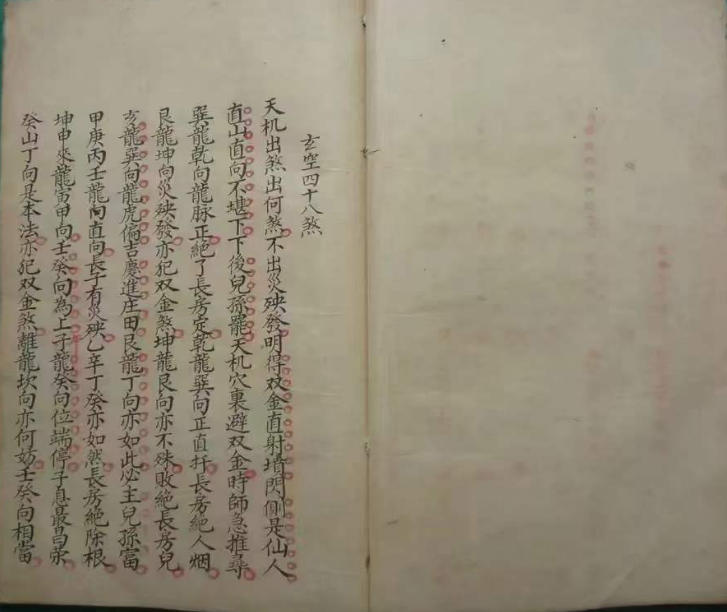 玄空四十八煞
天机出煞出何煞不出災殃發明得双金直射墳閃側是仙人
直山直向不堪下下後兒孫罷天机穴裏避双金時師急推尋
巽龍乾向龍脉正絶了長房定乾龍巽向正直扦長房絶人烟
艮龍坤向災殃發亦犯双金煞坤龍艮向亦不殊敗絶長房兒
亥龍巽向龍虎偏吉慶進庄田艮龍丁向亦如此必主兒孫富
甲庚丙壬龍向直向長子有災殃乙辛丁癸亦如然長房絶除根
坤申來龍寅甲向壬癸向為上子龍癸向位端停子息最昌荣
癸山丁向是本法亦犯双金煞離龍坎向亦何妨壬癸向相當